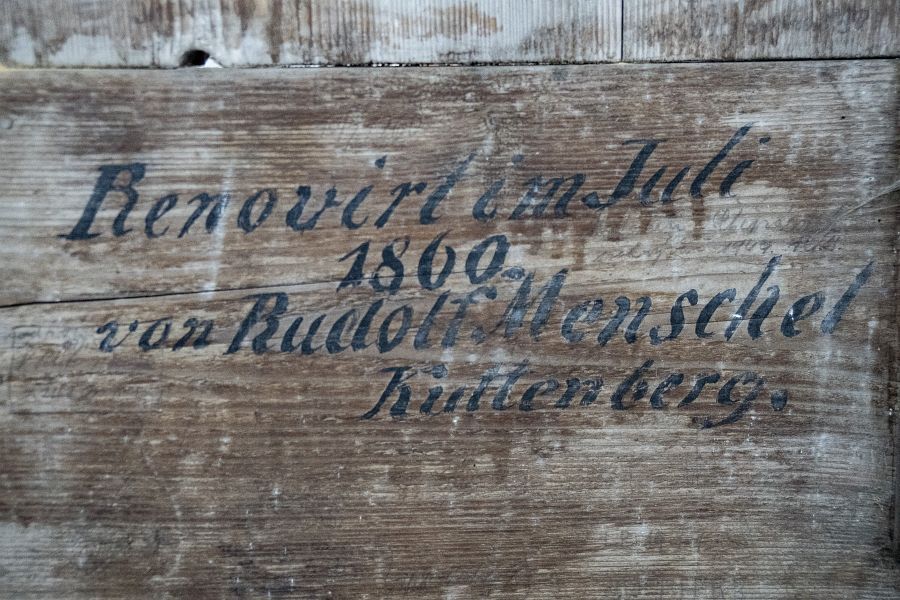 Renovirt im Juli
1860
von Rudolf Menschel
Kuttenberg.